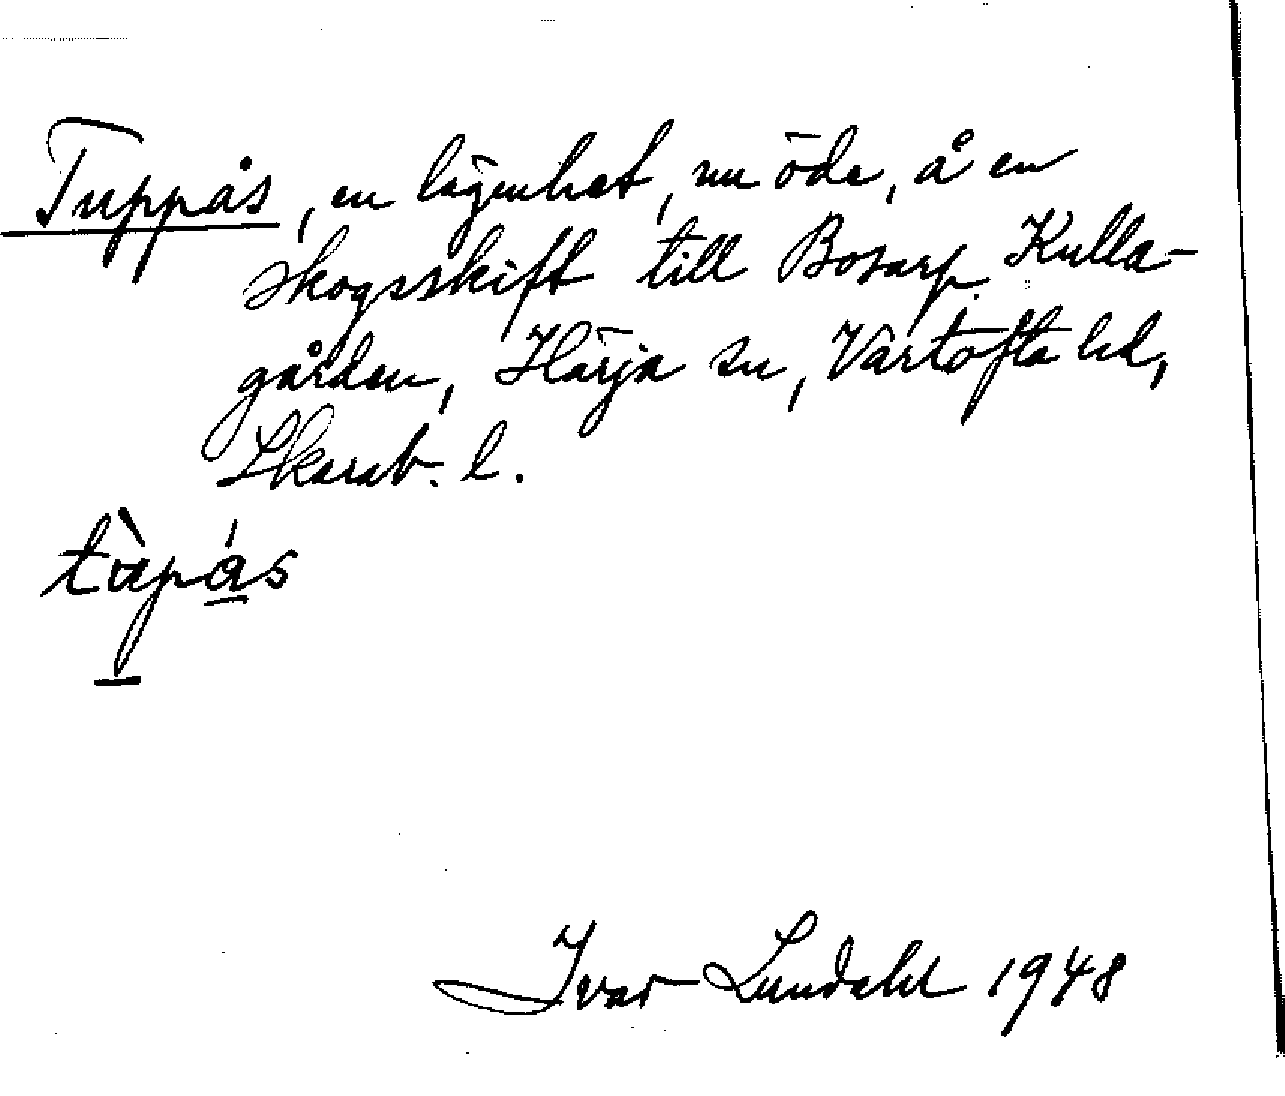 Tuppås, en lägenhet, nu öde, å en
skogsskift till Bosarp Kulla-
gården, Härja sn, Vartofta hd,
Skarab. l.
tùpås
Ivar Lundahl 1948